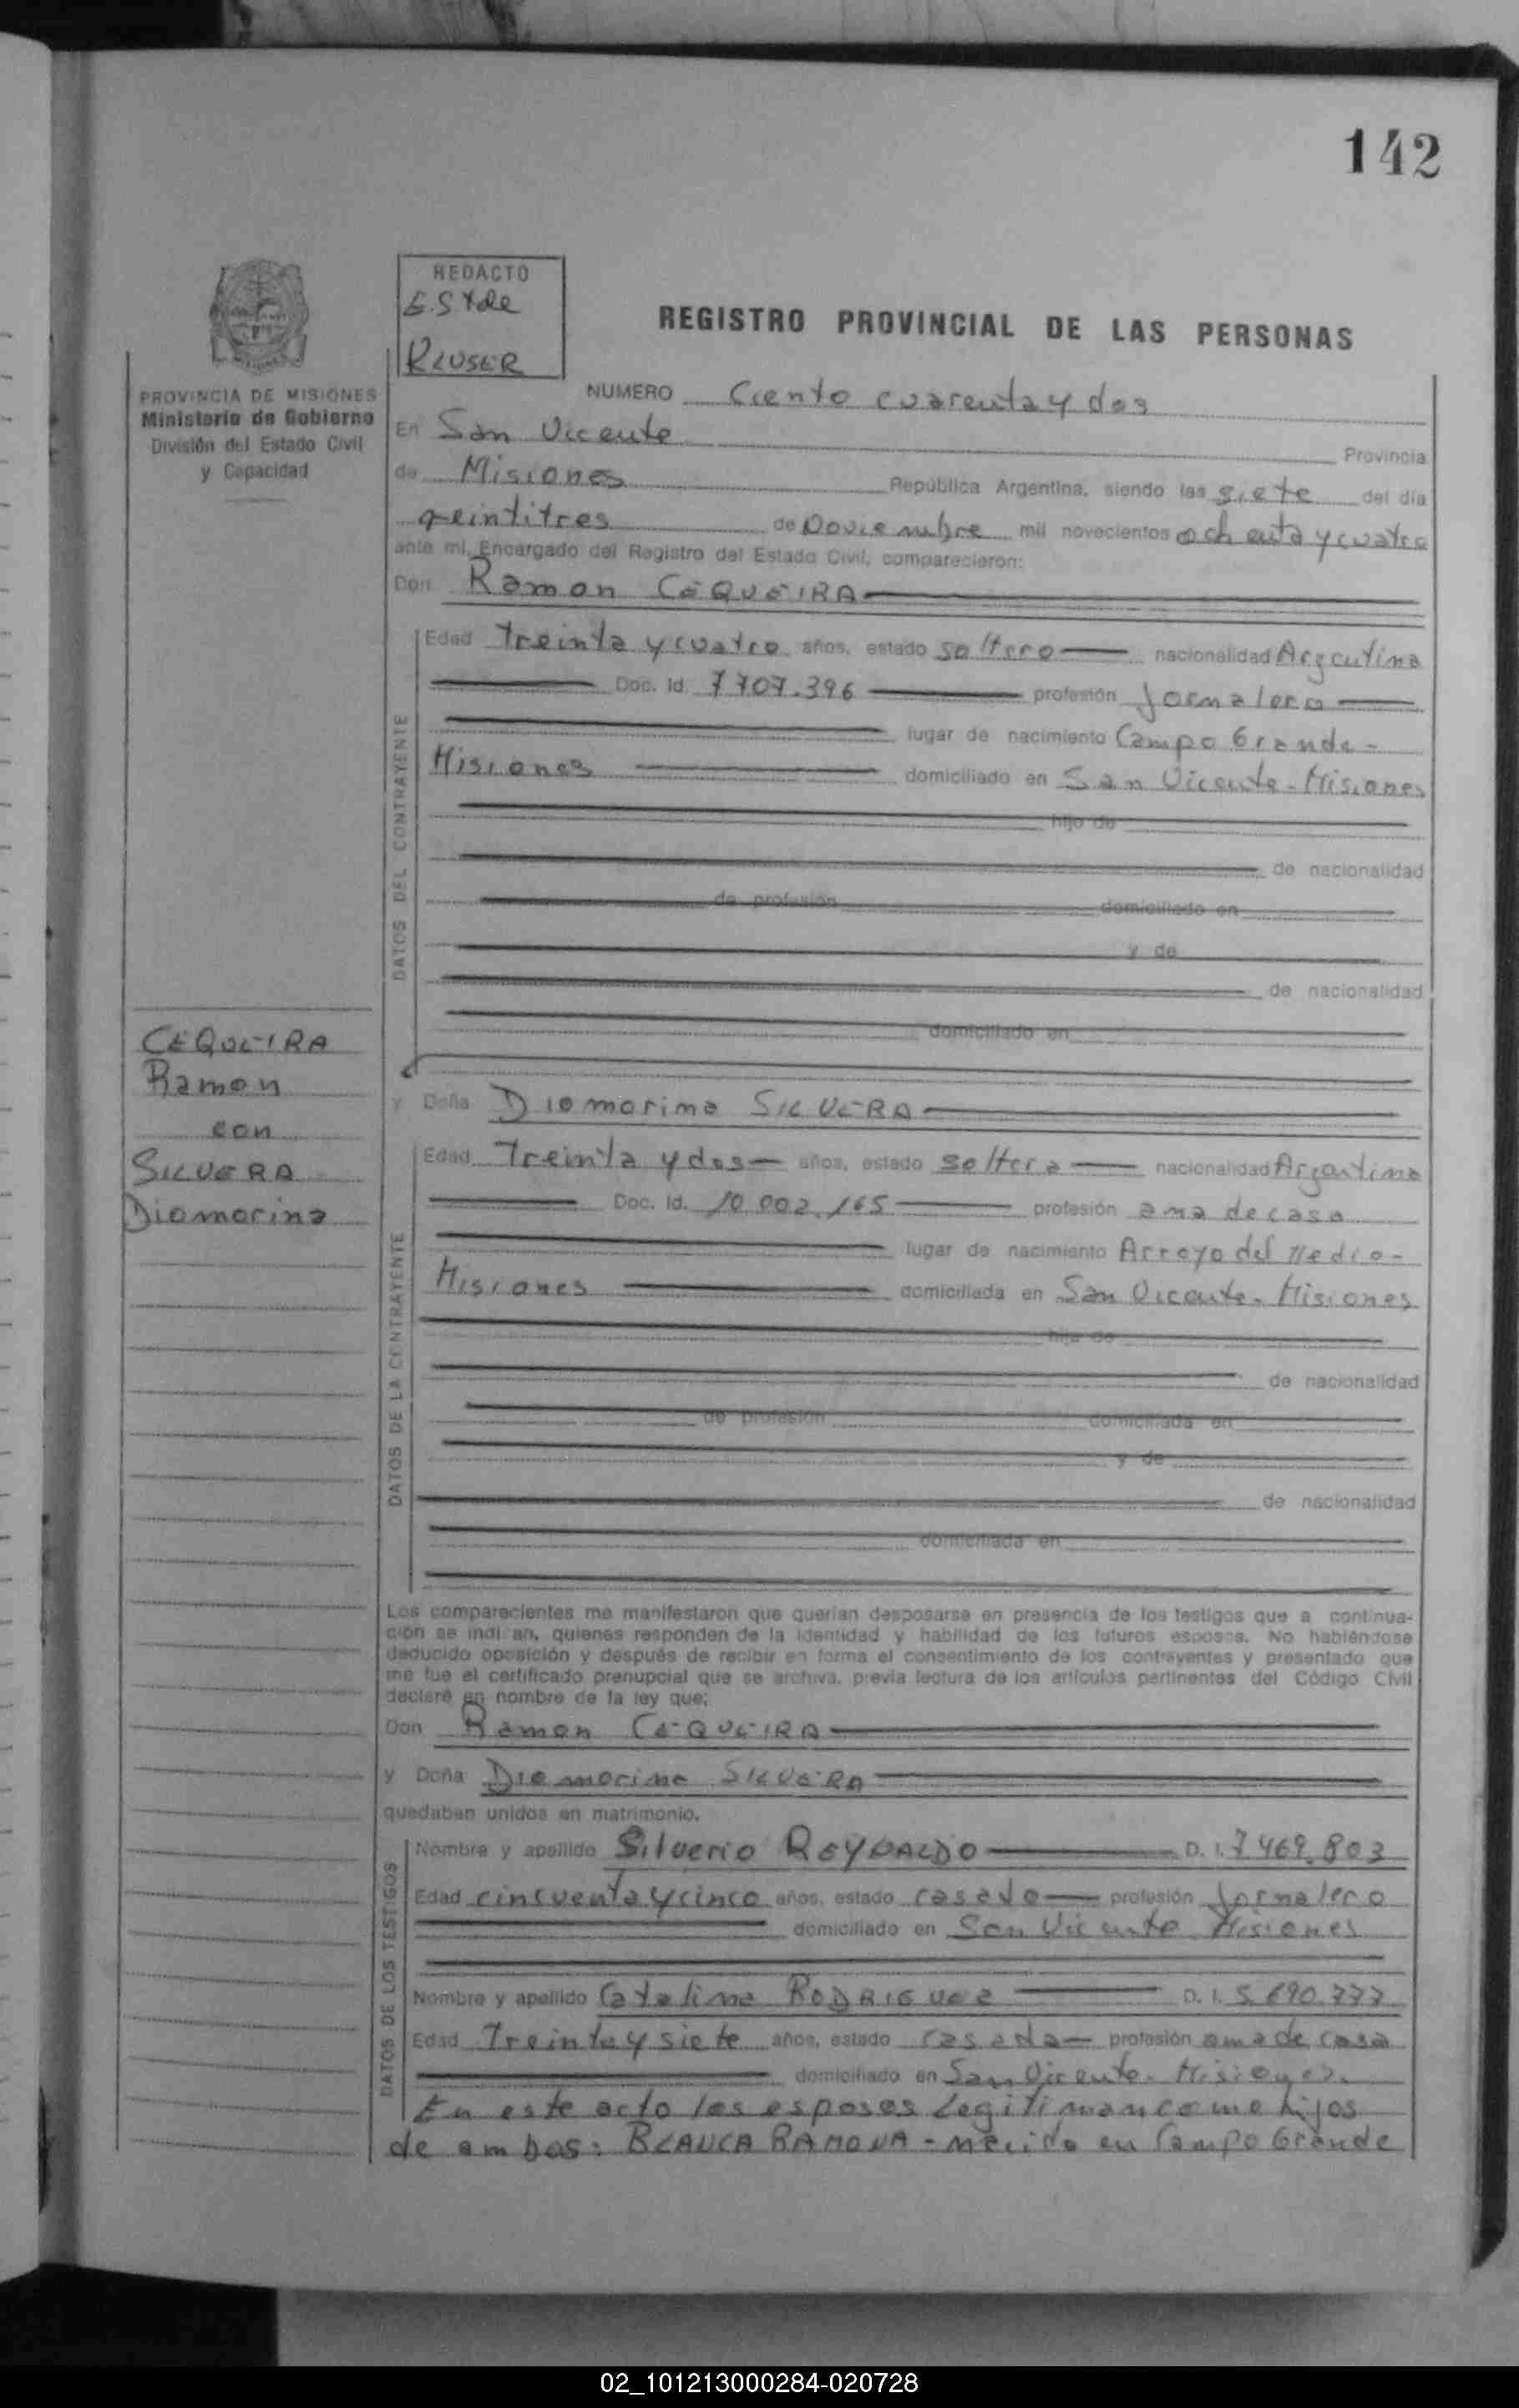 142
REDACTO
E. S. de
KLUSER
REGISTRO PROVINCIAL DE LAS PERSONAS
PROVINCIA DE MISIONES
Ministerio de Gobierno
División del Estado Civil
y Capacidad
NUMERO Ciento cuarenta y dos
En San Vicente Provincia
de Misiones República Argentina, siendo las siete del día
veintitres de Noviembre mil novecientos ochenta y cuatro
ante mí, Encargado del Registro del Estado Civil, comparecieron:
Don Ramon CEQUEIRA
DATOS DEL CONTRAYENTE
Edad Treinta y cuatro años, estado soltero nacionalidad Argentina
Doc. Id. 7707.396 profesión Jornalero
lugar de nacimiento Campo Grande -
Misiones domiciliado en San Vicente - Misiones
hijo de
de nacionalidad
de profesión domiciliado en
y de
de nacionalidad
domiciliado en
CEQUEIRA
Ramon
con
SILVERA
Diomorina
y Doña Diomorina SILVERA
DATOS DE LA CENTRAYENTE
Edad Treinta y dos años, estado soltera nacionalidad Argentina
Doc. Id. 10.002.165 profesión ama de casa
lugar de nacimiento Arroyo del Medio -
Misiones domiciliada en San Vicente - Misiones
hija de
de nacionalidad
de profesión domiciliada en
y de
de nacionalidad
domiciliada en
Los comparecientes me manifestaron que querían desposarse en presencia de los testigos que a continua-
ción se indican, quienes responden de la identidad y habilidad de los futuros esposos. No habiéndose
deducido oposición y después de recibir en forma el consentimiento de los contrayentes y presentado que
me fue el certificado prenupcial que se archiva, previa lectura de los artículos pertinentes del Código Civil
declaré en nombre de la ley que;
Don Ramon CEQUEIRA
y Doña Diomorina SILVERA
quedaban unidos en matrimonio.
DATOS DE LOS TESTIGOS
Nombre y apellido Silverio REYNALDO D. I. 7469.803
Edad cincuenta y cinco años, estado casado profesión Jornalero
domiciliado en San Vicente Misiones
Nombre y apellido Catalina RODRIGUEZ D. I. 5.690.777
Edad Treinta y siete años, estado casada profesión ama de casa
domiciliado en San Vicente - Misiones.
En este acto los esposos Legitiman como hijos
de ambos: BLANCA RAMONA - nacida en Campo Grande
02_101213000284-020728